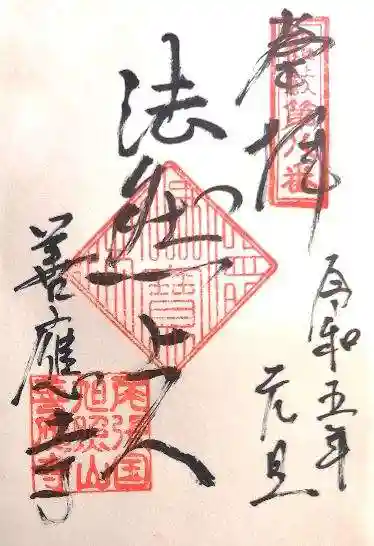 奉拝
令和五年
元旦
法然上人
善應寺
尾張国
旭照山
善應寺